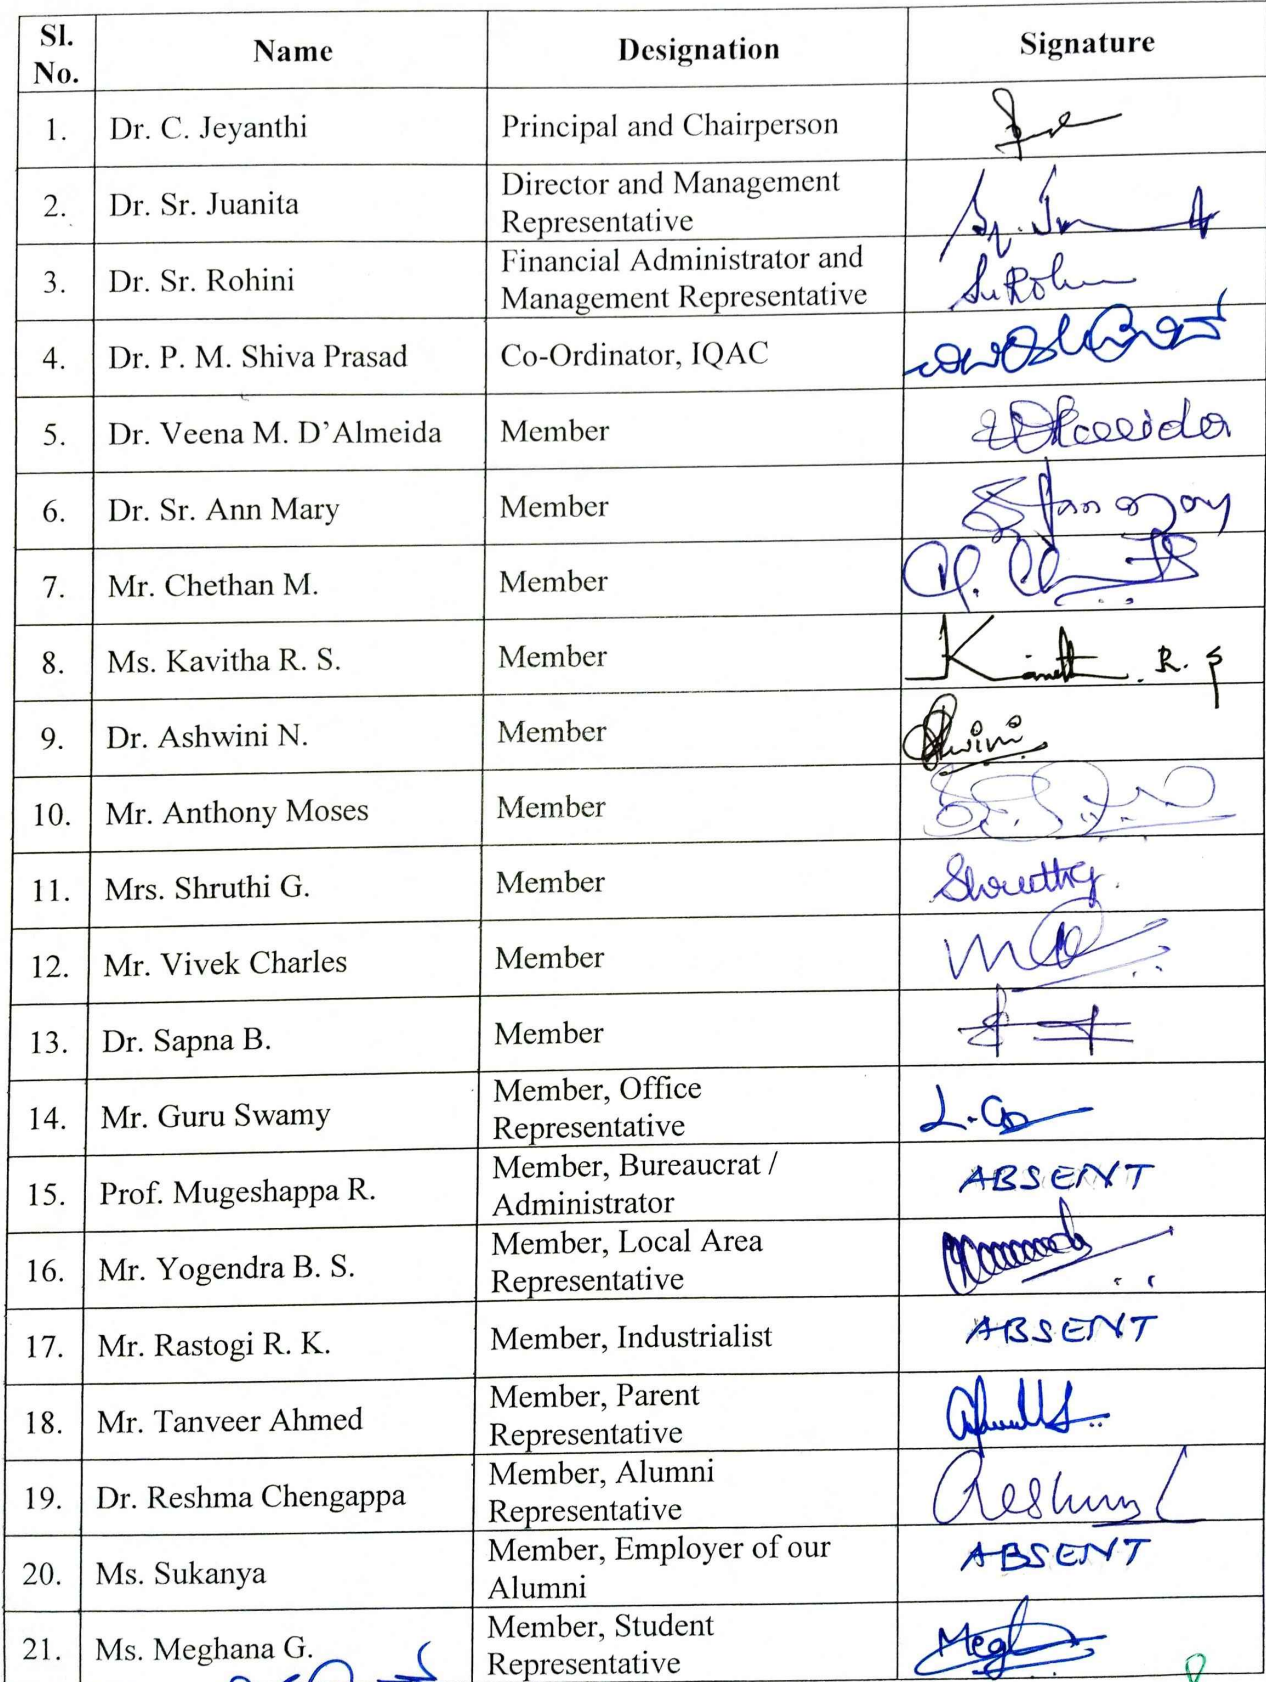 Sl. No. Name Designation Signature
1. Dr. C. Jeyanthi Principal and Chairperson
2. Dr. Sr. Juanita Director and Management Representative
3. Dr. Sr. Rohini Financial Administrator and Management Representative Sr Rohini
4. Dr. P. M. Shiva Prasad Co-Ordinator, IQAC
5. Dr. Veena M. D’Almeida Member
6. Dr. Sr. Ann Mary Member
7. Mr. Chethan M. Member
8. Ms. Kavitha R. S. Member R. S
9. Dr. Ashwini N. Member
10. Mr. Anthony Moses Member
11. Mrs. Shruthi G. Member
12. Mr. Vivek Charles Member
13. Dr. Sapna B. Member
14. Mr. Guru Swamy Member, Office Representative
15. Prof. Mugeshappa R. Member, Bureaucrat / Administrator ABSENT
16. Mr. Yogendra B. S. Member, Local Area Representative
17. Mr. Rastogi R. K. Member, Industrialist ABSENT
18. Mr. Tanveer Ahmed Member, Parent Representative
19. Dr. Reshma Chengappa Member, Alumni Representative
20. Ms. Sukanya Member, Employer of our Alumni ABSENT
21. Ms. Meghana G. Member, Student Representative